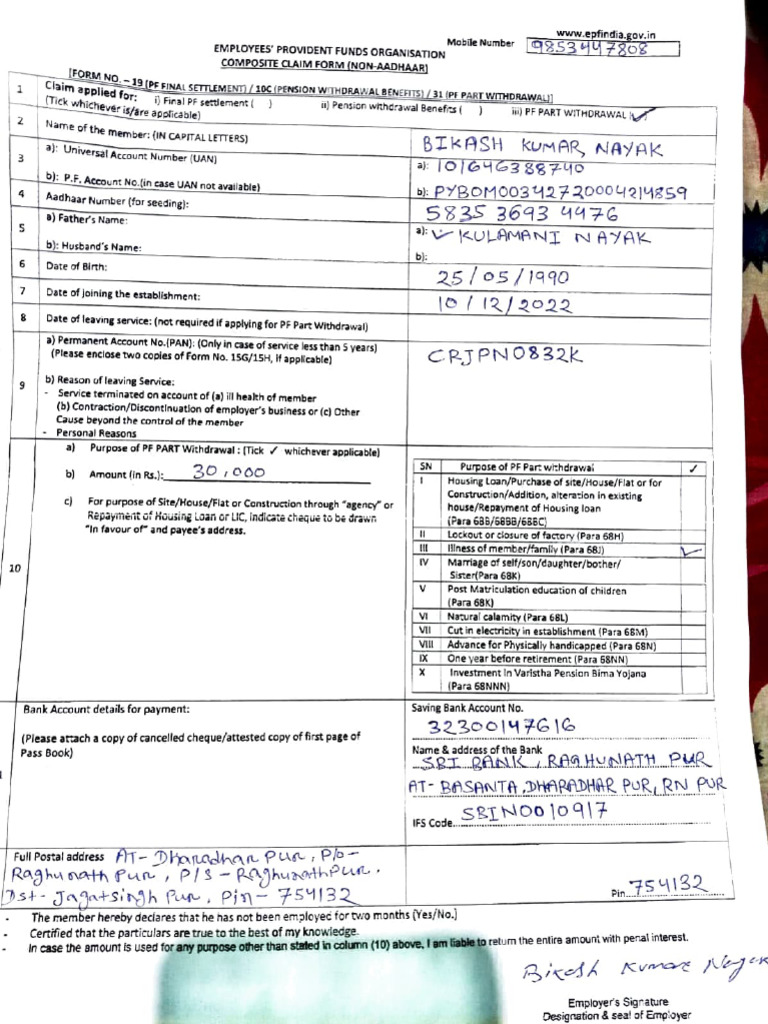 www.epfindia.gov.in
Mobile Number 9853447808
EMPLOYEES' PROVIDENT FUNDS ORGANISATION
COMPOSITE CLAIM FORM (NON-AADHAAR)
[FORM NO. – 19 (PF FINAL SETTLEMENT) / 10C (PENSION WITHDRAWAL BENEFITS) / 31 (PF PART WITHDRAWAL)]
1 Claim applied for: i) Final PF settlement ( ) ii) Pension withdrawal Benefits ( ) iii) PF PART WITHDRAWAL ✓
(Tick whichever is/are applicable)
2 Name of the member: (IN CAPITAL LETTERS) BIKASH KUMAR NAYAK
3 a): Universal Account Number (UAN) a): 101646388740
b): P.F. Account No.(in case UAN not available) b): PYBOM00342720004214859
4 Aadhaar Number (for seeding): 5835 3693 4476
5 a) Father's Name: a): ✓ KULAMANI NAYAK
b): Husband's Name: b):
6 Date of Birth: 25/05/1990
7 Date of joining the establishment: 10/12/2022
8 Date of leaving service: (not required if applying for PF Part Withdrawal)
9 a) Permanent Account No.(PAN): (Only in case of service less than 5 years) CRJPN0832K
(Please enclose two copies of Form No. 15G/15H, if applicable)
b) Reason of leaving Service:
- Service terminated on account of (a) ill health of member
(b) Contraction/Discontinuation of employer's business or (c) Other
Cause beyond the control of the member
- Personal Reasons
10 a) Purpose of PF PART Withdrawal : (Tick ✓ whichever applicable)
b) Amount (in Rs.): 30,000
c) For purpose of Site/House/Flat or Construction through "agency" or
Repayment of Housing Loan or LIC, indicate cheque to be drawn
"In favour of" and payee's address.
SN Purpose of PF Part withdrawal ✓
I Housing Loan/Purchase of site/House/Flat or for
Construction/Addition, alteration in existing
house/Repayment of Housing loan
(Para 68B/68BB/68BC)
II Lockout or closure of factory (Para 68H)
III Illness of member/family (Para 68J) ✓
IV Marriage of self/son/daughter/bother/
Sister(Para 68K)
V Post Matriculation education of children
(Para 68K)
VI Natural calamity (Para 68L)
VII Cut in electricity in establishment (Para 68M)
VIII Advance for Physically handicapped (Para 68N)
IX One year before retirement (Para 68NN)
X Investment in Varistha Pension Bima Yojana
(Para 68NNN)
Bank Account details for payment:
(Please attach a copy of cancelled cheque/attested copy of first page of
Pass Book)
Saving Bank Account No.
32300147616
Name & address of the Bank
SBI BANK, RAGHUNATH PUR
AT- BASANTA, DHARADHAR PUR, RN PUR
IFS Code. SBIN0010917
Full Postal address AT- Dharadhar Pur, P/o-
Raghunath Pur, P/S - Raghunath Pur.
Dst- Jagatsingh Pur, Pin - 754132
Pin 754132
- The member hereby declares that he has not been employed for two months (Yes/No.)
- Certified that the particulars are true to the best of my knowledge.
- In case the amount is used for any purpose other than stated in column (10) above, I am liable to return the entire amount with penal interest.
Bikash Kumar Nayak
Employer's Signature
Designation & seal of Employer